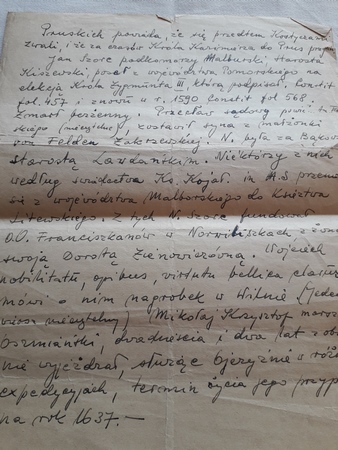 Pruskich powiada, że się przedtem Kostycami
zwali, i że za czasów Króla Kazimierza do Prus
Jan Szorc podkomorzy Malburski, Starosta
Kiszewski, poseł z województwa Pomorskiego na
elekcją Króla Zygmunta III, którą podpisał. Constit
fol. 457 i znowu w r. 1590 Constit fol 568.
Zmarł bezżenny. Przecław sądowy
skiego (nieczytelne), zostawił syna z małżonki
von Felden Zakrzewskiej N. była za
starostą Niektórzy z nich
według świadectwa Ks. Kojał. in MS
się z województwa Malborskiego do Księstwa
Litewskiego. Z tych N. Szorc fundował
OO. Franciszkanów w Norwiliszkach z żoną
swoją Dorotą Zienowiczówną. Wojciech
nobilitate, opibus, virtute bellica
mówi o nim nagrobek w Wilnie (jeden
wiersz nieczytelny) Mikołaj Krzysztof
Oszmiański, dwadzieścia i dwa lat z
nie wyjeżdżał, służąc Ojczyźnie w
expedycyjach, termin życia jego
na rok 1637.—